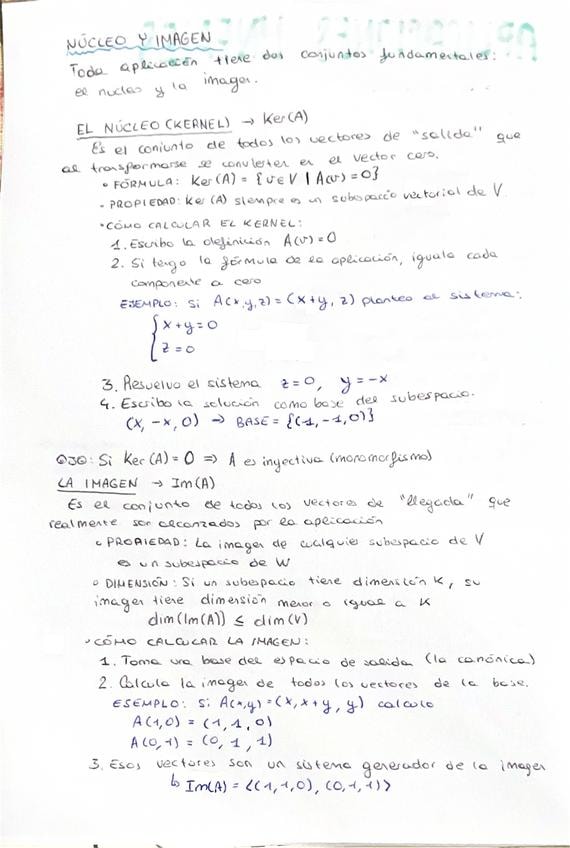 NÚCLEO Y IMAGEN
Toda aplicación tiene dos conjuntos fundamentales:
el nucleo y la imagen.
EL NÚCLEO (KERNEL) → Ker(A)
Es el conjunto de todos los vectores de "salida" que
al transformarse se convierten en el vector cero.
• FÓRMULA: Ker(A) = {v∈V | A(v)=0}
• PROPIEDAD: Ker(A) siempre es un subespacio vectorial de V
• CÓMO CALCULAR EL KERNEL:
1. Escribo la definición A(v)=0
2. Si tengo la fórmula de la aplicación, iguala cada
componente a cero
EJEMPLO: Si A(x,y,z)=(x+y, z) planteo el sistema:
{ x+y=0
z=0
3. Resuelvo el sistema z=0, y=-x
4. Escribo la solución como base del subespacio.
(x,-x,0) → BASE = {(1,-1,0)}
OJO: Si Ker(A)=0 ⇒ A es inyectiva (monomorfismo)
LA IMAGEN → Im(A)
Es el conjunto de todos los vectores de "llegada" que
realmente son alcanzados por la aplicación
• PROPIEDAD: La imagen de cualquier subespacio de V
es un subespacio de W
• DIMENSIÓN: Si un subespacio tiene dimensión K, su
imagen tiene dimensión menor o igual a K
dim(Im(A)) ≤ dim(V)
• CÓMO CALCULAR LA IMAGEN:
1. Toma una base del espacio de salida (la canónica)
2. Calcula la imagen de todos los vectores de la base.
EJEMPLO: Si A(x,y)=(x,x+y,y) calculo
A(1,0) = (1,1,0)
A(0,1) = (0,1,1)
3. Esos vectores son un sistema generador de la imagen
↳ Im(A) = <(1,1,0), (0,1,1)>